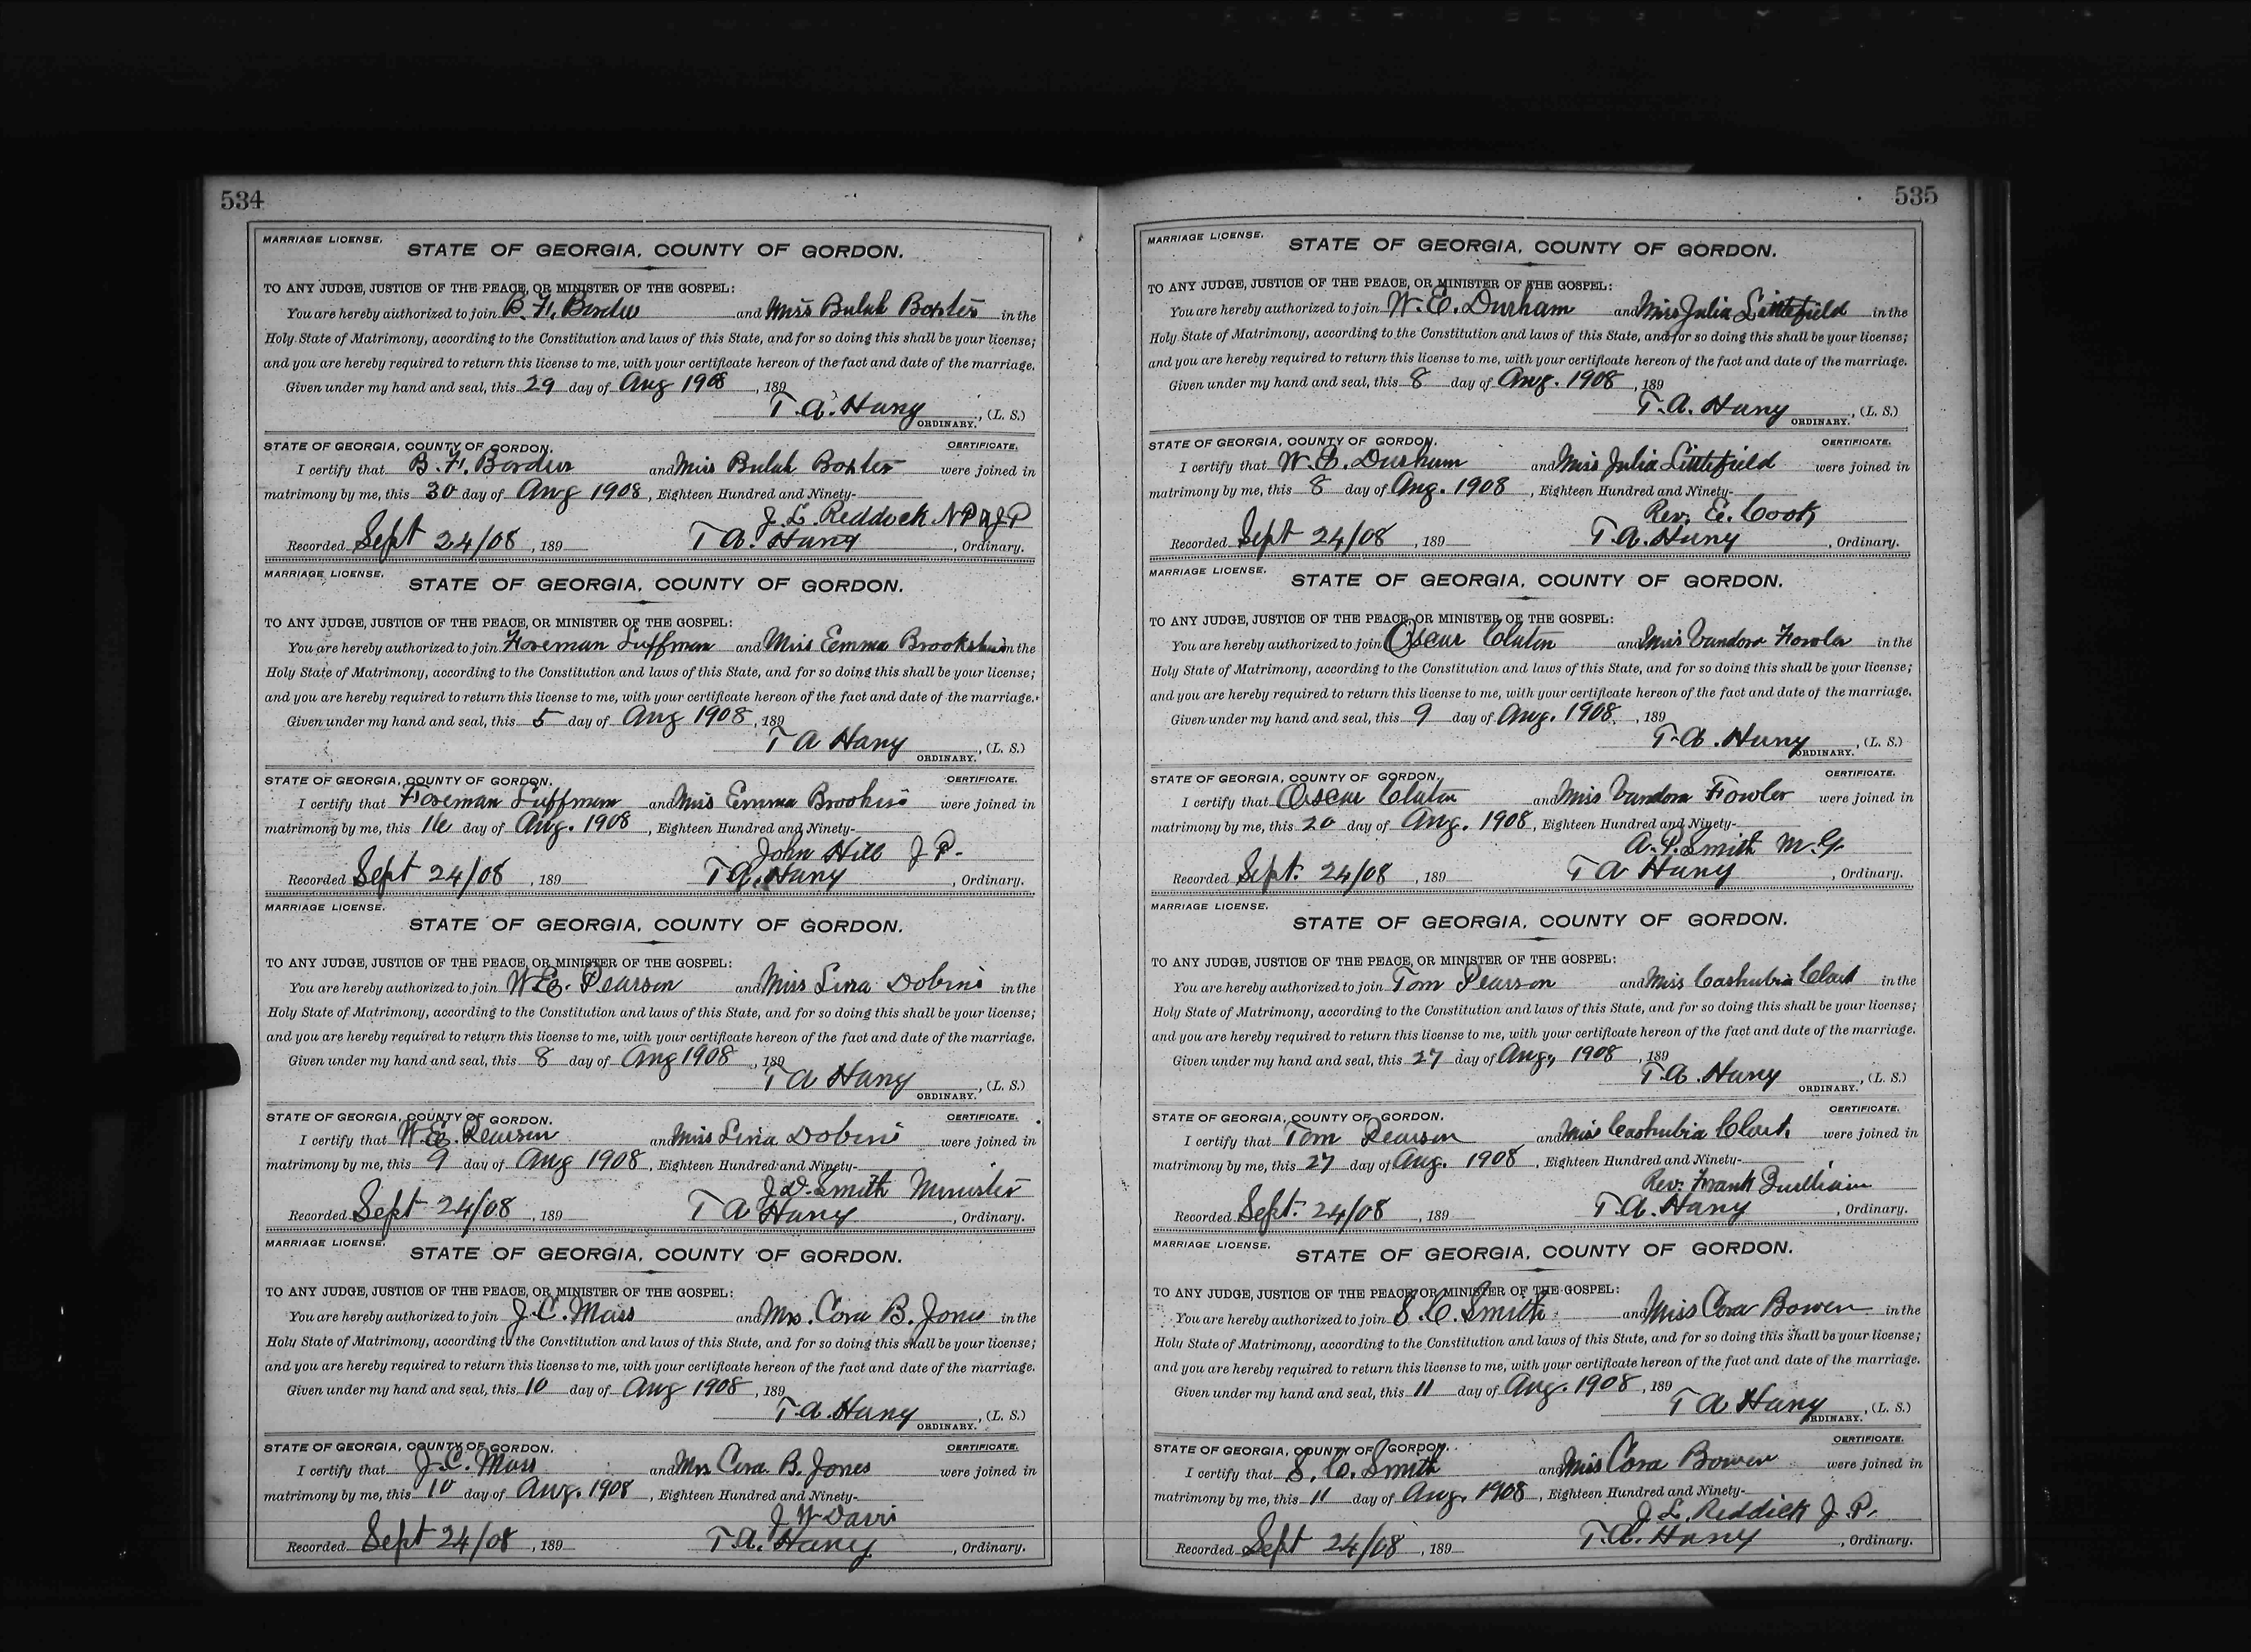 534
MARRIAGE LICENSE.
STATE OF GEORGIA, COUNTY OF GORDON.
TO ANY JUDGE, JUSTICE OF THE PEACE, OR MINISTER OF THE GOSPEL:
You are hereby authorized to join B. F. and Miss Bulah in the
Holy State of Matrimony, according to the Constitution and laws of this State, and for so doing this shall be your license;
and you are hereby required to return this license to me, with your certificate hereon of the fact and date of the marriage.
Given under my hand and seal, this 29 day of Aug 1908, 189
T. A. , (L. S.)
ORDINARY.
STATE OF GEORGIA, COUNTY OF GORDON. CERTIFICATE.
I certify that B. F. and Miss Bulah were joined in
matrimony by me, this 30 day of Aug 1908, Eighteen Hundred and Ninety-
J. L. Reddock N P
Recorded Sept 24/08, 189 T A. , Ordinary.
MARRIAGE LICENSE.
STATE OF GEORGIA, COUNTY OF GORDON.
TO ANY JUDGE, JUSTICE OF THE PEACE, OR MINISTER OF THE GOSPEL:
You are hereby authorized to join Foreman Suffman and Miss Emma in the
Holy State of Matrimony, according to the Constitution and laws of this State, and for so doing this shall be your license;
and you are hereby required to return this license to me, with your certificate hereon of the fact and date of the marriage.
Given under my hand and seal, this 5 day of Aug 1908, 189
T A , (L. S.)
ORDINARY.
STATE OF GEORGIA, COUNTY OF GORDON. CERTIFICATE.
I certify that Foreman Suffman and Miss Emma were joined in
matrimony by me, this 16 day of Aug. 1908, Eighteen Hundred and Ninety-
John Hill J P.
Recorded Sept 24/08, 189 T A. , Ordinary.
MARRIAGE LICENSE.
STATE OF GEORGIA, COUNTY OF GORDON.
TO ANY JUDGE, JUSTICE OF THE PEACE, OR MINISTER OF THE GOSPEL:
You are hereby authorized to join W. E. Pearson and Miss Lina Dobins in the
Holy State of Matrimony, according to the Constitution and laws of this State, and for so doing this shall be your license;
and you are hereby required to return this license to me, with your certificate hereon of the fact and date of the marriage.
Given under my hand and seal, this 8 day of Aug 1908, 189
T A , (L. S.)
ORDINARY.
STATE OF GEORGIA, COUNTY OF GORDON. CERTIFICATE.
I certify that W. E. Pearson and Miss Lina Dobins were joined in
matrimony by me, this 9 day of Aug 1908, Eighteen Hundred and Ninety-
J. D. Smith Minister
Recorded Sept 24/08, 189 T A , Ordinary.
MARRIAGE LICENSE.
STATE OF GEORGIA, COUNTY OF GORDON.
TO ANY JUDGE, JUSTICE OF THE PEACE, OR MINISTER OF THE GOSPEL:
You are hereby authorized to join J. C. Mass and Mrs. Cora B. Jones in the
Holy State of Matrimony, according to the Constitution and laws of this State, and for so doing this shall be your license;
and you are hereby required to return this license to me, with your certificate hereon of the fact and date of the marriage.
Given under my hand and seal, this 10 day of Aug 1908, 189
T. A. , (L. S.)
ORDINARY.
STATE OF GEORGIA, COUNTY OF GORDON. CERTIFICATE.
I certify that J. C. Mass and Mrs Cora B. Jones were joined in
matrimony by me, this 10 day of Aug. 1908, Eighteen Hundred and Ninety-
J W Davis
Recorded Sept 24/08, 189 T. A. , Ordinary.
535
MARRIAGE LICENSE.
STATE OF GEORGIA, COUNTY OF GORDON.
TO ANY JUDGE, JUSTICE OF THE PEACE, OR MINISTER OF THE GOSPEL:
You are hereby authorized to join W. E. Durham and Miss Julia Littlefield in the
Holy State of Matrimony, according to the Constitution and laws of this State, and for so doing this shall be your license;
and you are hereby required to return this license to me, with your certificate hereon of the fact and date of the marriage.
Given under my hand and seal, this 8 day of Aug. 1908, 189
T. A. , (L. S.)
ORDINARY.
STATE OF GEORGIA, COUNTY OF GORDON. CERTIFICATE.
I certify that W. E. Durham and Miss Julia Littlefield were joined in
matrimony by me, this 8 day of Aug. 1908, Eighteen Hundred and Ninety-
Rev. E. Cook
Recorded Sept 24/08, 189 T. A. , Ordinary.
MARRIAGE LICENSE.
STATE OF GEORGIA, COUNTY OF GORDON.
TO ANY JUDGE, JUSTICE OF THE PEACE, OR MINISTER OF THE GOSPEL:
You are hereby authorized to join Oscar and Miss Vandora Fowler in the
Holy State of Matrimony, according to the Constitution and laws of this State, and for so doing this shall be your license;
and you are hereby required to return this license to me, with your certificate hereon of the fact and date of the marriage.
Given under my hand and seal, this 9 day of Aug. 1908, 189
T. A. , (L. S.)
ORDINARY.
STATE OF GEORGIA, COUNTY OF GORDON. CERTIFICATE.
I certify that Oscar and Miss Vandora Fowler were joined in
matrimony by me, this 20 day of Aug. 1908, Eighteen Hundred and Ninety-
A. P. Smith M. G.
Recorded Sept. 24/08, 189 T A , Ordinary.
MARRIAGE LICENSE.
STATE OF GEORGIA, COUNTY OF GORDON.
TO ANY JUDGE, JUSTICE OF THE PEACE, OR MINISTER OF THE GOSPEL:
You are hereby authorized to join Tom Pearson and Miss Cashubia in the
Holy State of Matrimony, according to the Constitution and laws of this State, and for so doing this shall be your license;
and you are hereby required to return this license to me, with your certificate hereon of the fact and date of the marriage.
Given under my hand and seal, this 27 day of Aug, 1908, 189
T. A. , (L. S.)
ORDINARY.
STATE OF GEORGIA, COUNTY OF GORDON. CERTIFICATE.
I certify that Tom Pearson and Miss Cashubia were joined in
matrimony by me, this 27 day of Aug. 1908, Eighteen Hundred and Ninety-
Rev. Frank Quilliain
Recorded Sept. 24/08, 189 T. A. , Ordinary.
MARRIAGE LICENSE.
STATE OF GEORGIA, COUNTY OF GORDON.
TO ANY JUDGE, JUSTICE OF THE PEACE, OR MINISTER OF THE GOSPEL:
You are hereby authorized to join S. C. Smith and Miss Cora Bowen in the
Holy State of Matrimony, according to the Constitution and laws of this State, and for so doing this shall be your license;
and you are hereby required to return this license to me, with your certificate hereon of the fact and date of the marriage.
Given under my hand and seal, this 11 day of Aug. 1908, 189
T A , (L. S.)
ORDINARY.
STATE OF GEORGIA, COUNTY OF GORDON. CERTIFICATE.
I certify that S. C. Smith and Miss Cora Bowen were joined in
matrimony by me, this 11 day of Aug. 1908, Eighteen Hundred and Ninety-
J. L. Reddick J. P.
Recorded Sept 24/08, 189 T. A. , Ordinary.